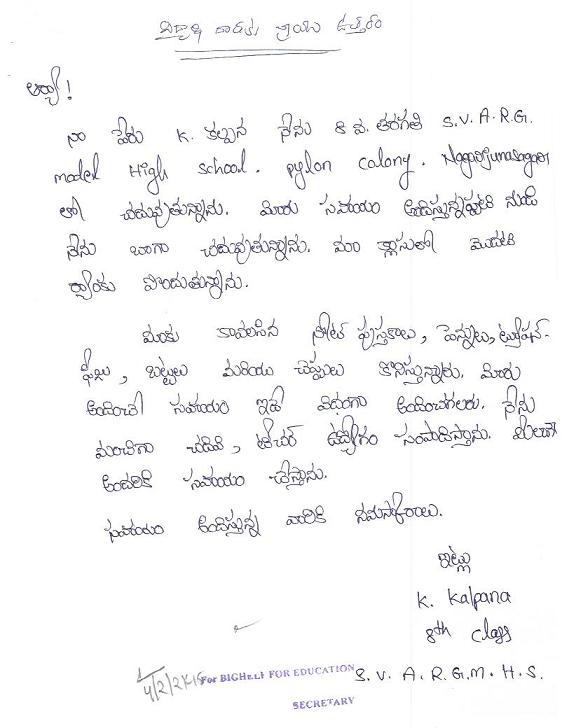 విద్యార్థి దాతకు వ్రాయు ఉత్తరం
ఆర్యా!
నా పేరు K. కల్పన నేను 8 వ. తరగతి S.V.A.R.G.
model High school. pylon colony. Nagarjunasagar
లో చదువుతున్నాను. మీరు సహాయం అందిస్తున్నప్పటి నుండి
నేను బాగా చదువుతున్నాను. మా క్లాసులో మొదటి
ర్యాంకు పొందుతున్నాను.
మాకు కావలసిన నోట్ పుస్తకాలు, పెన్నులు, ట్యూషన్-
ఫీజు, బట్టలు మరియు చెప్పులు కొనిస్తున్నారు. మీరు
అందించే సహాయం ఇదే విధంగా అందించగలరు. నేను
మంచిగా చదివి, టీచర్ ఉద్యోగం సంపాదిస్తాను.
అందరికి సహాయం చేస్తాను.
సహాయం అందిస్తున్న వారికి నమస్కారాలు.
ఇట్లు
K. Kalpana
8th class
S.V.A.R.G.M.H.S.
For BIGHELP FOR EDUCATION
SECRETARY